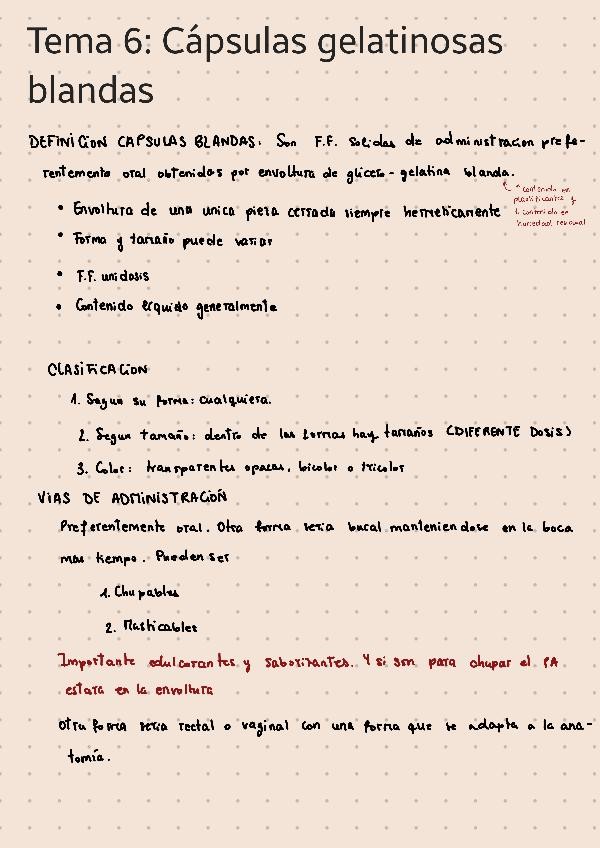 Tema 6: Cápsulas gelatinosas
blandas
DEFINICION CAPSULAS BLANDAS: Son F.F. solidas de administracion prefe-
rentemente oral obtenidas por envoltura de glicero-gelatina blanda.
↑ contenido en
plastificantes y
↓ contenido en
humedad residual
• Envoltura de una unica pieza cerrada siempre hermeticamente
• Forma y tamaño puede variar
• F.F. unidosis
• Contenido líquido generalmente
CLASIFICACION
1. Segun su forma: cualquiera.
2. Segun tamaño: dentro de las formas hay tamaños (DIFERENTE DOSIS)
3. Color: transparentes opacas, bicolor o tricolor
VIAS DE ADMINISTRACIÓN
Preferentemente oral. Otra forma seria bucal manteniendose en la boca
mas tiempo. Pueden ser
1. Chupables
2. Masticables
Importante edulcorantes y saborizantes. Y si son para chupar el PA
estara en la envoltura
Otra forma seria rectal o vaginal con una forma que se adapta a la ana-
tomía.